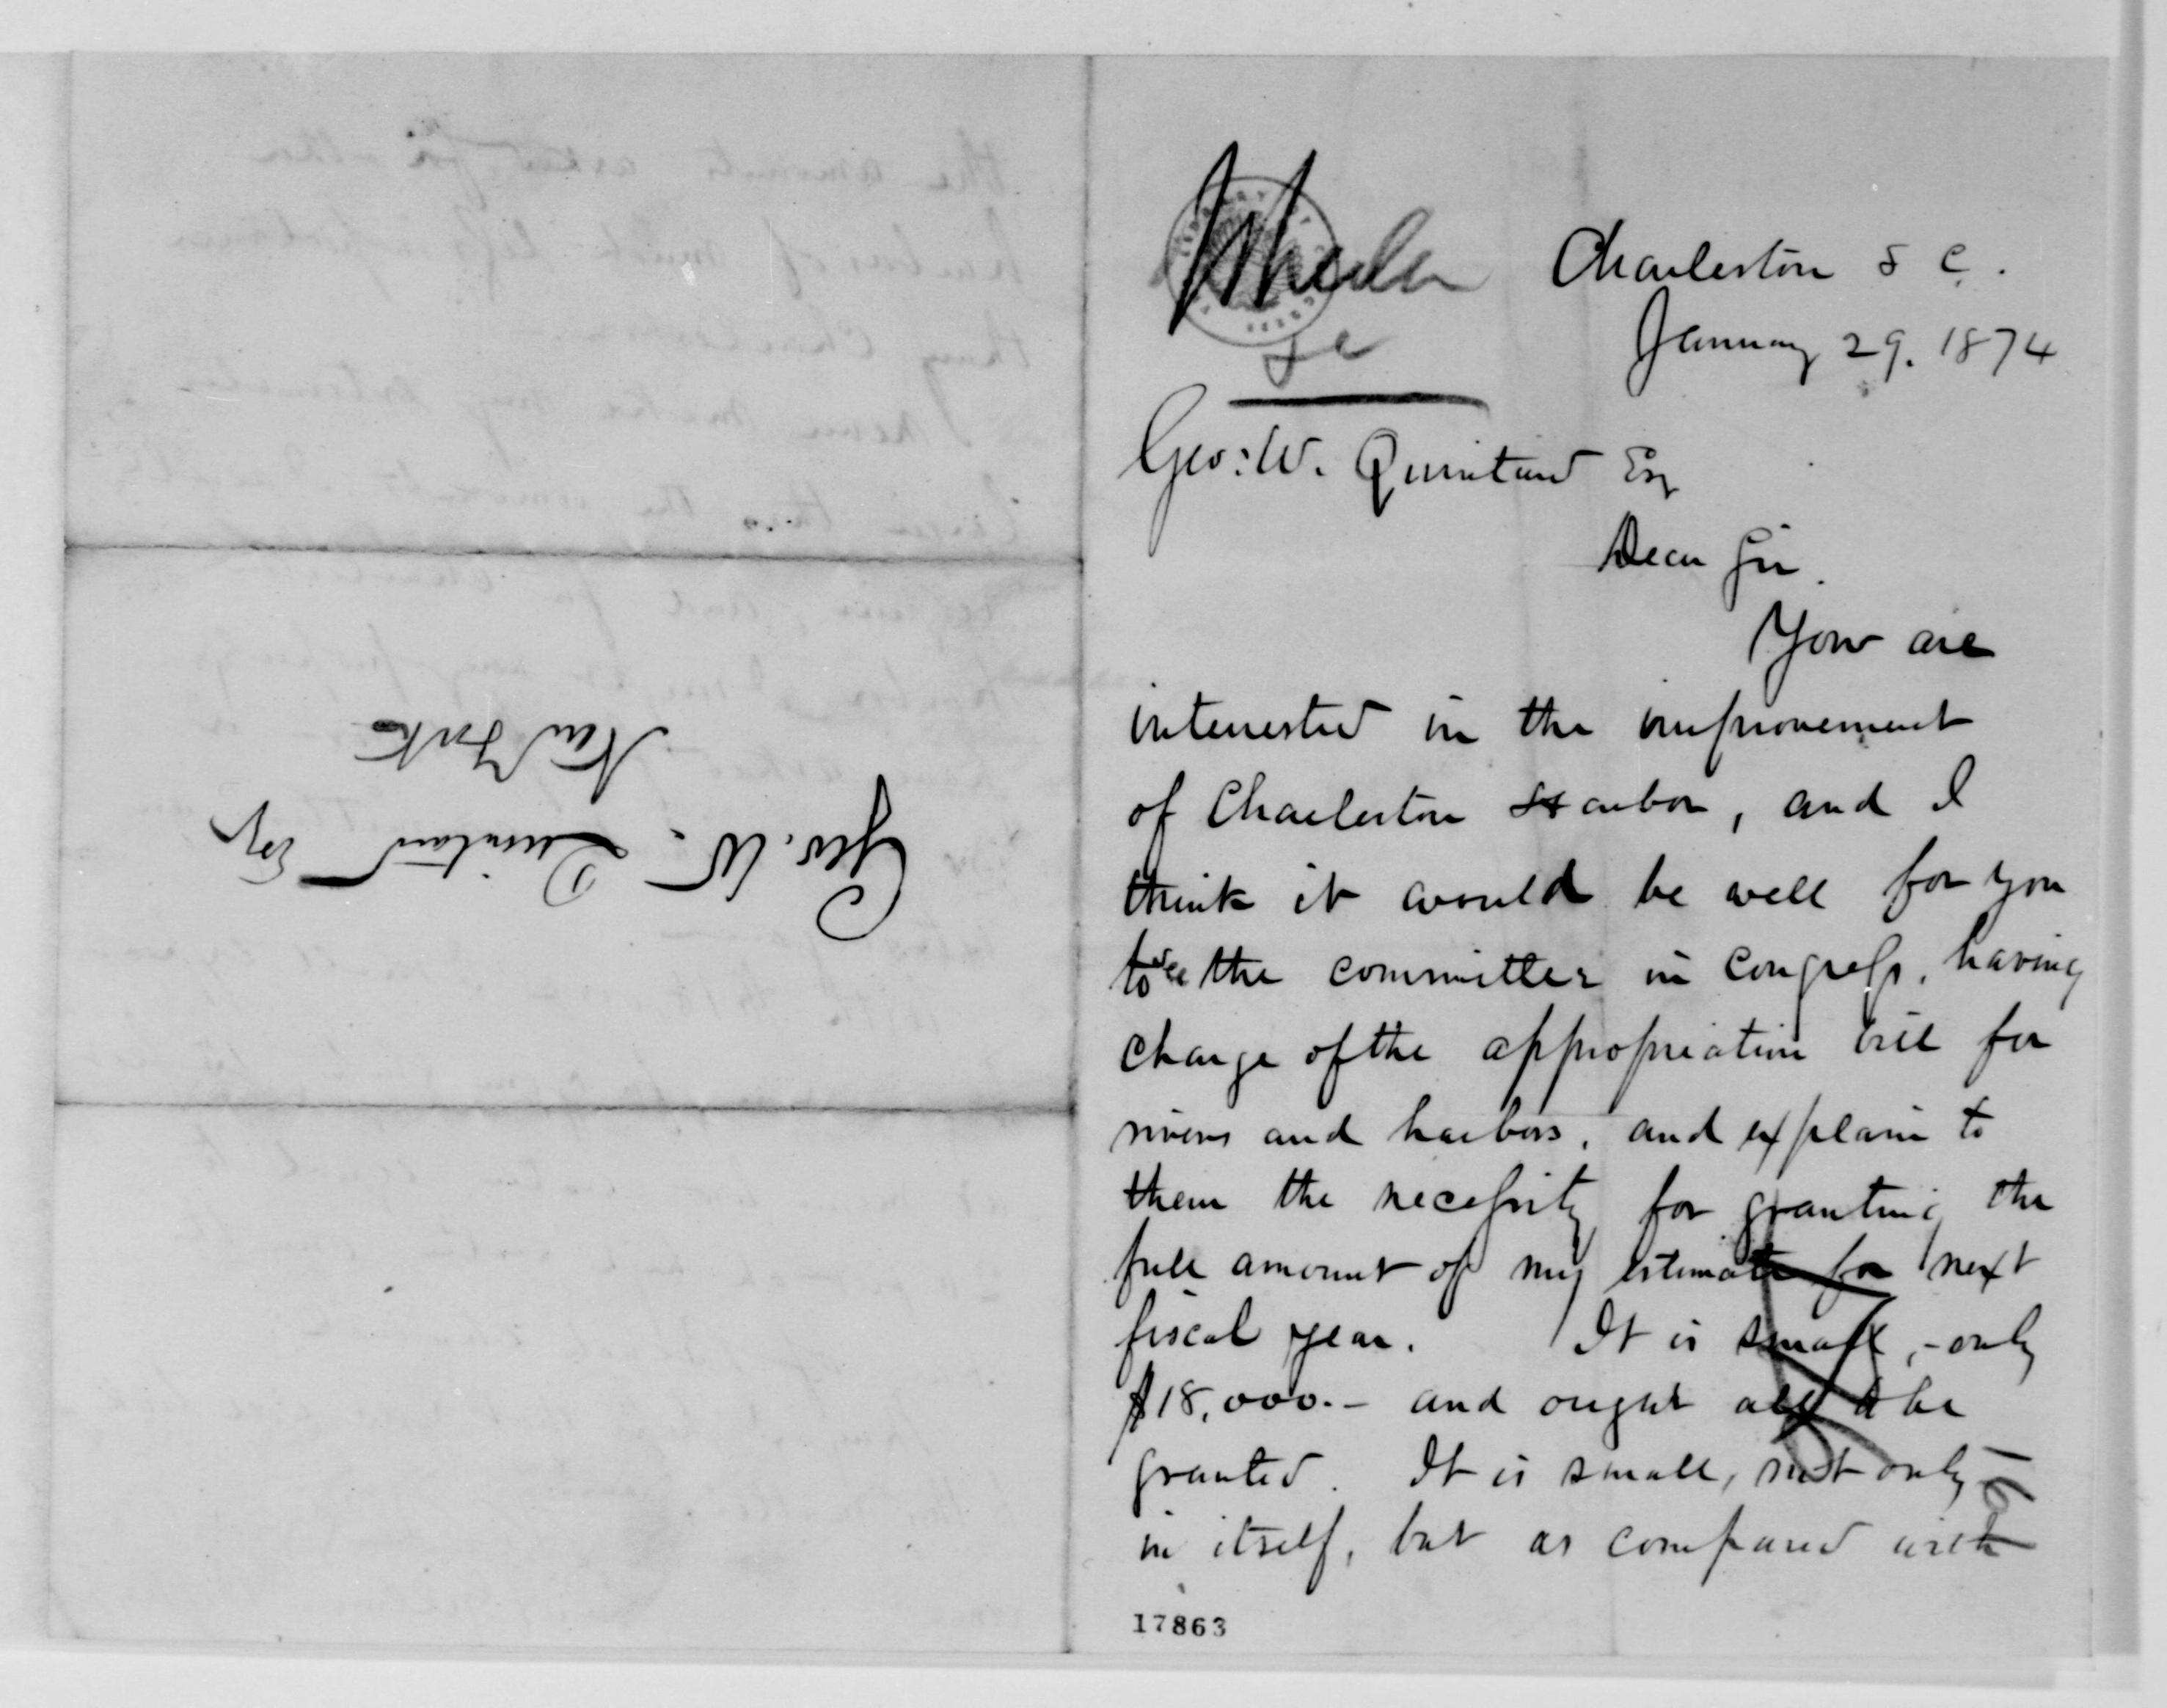 Charleston S C.
January 29. 1874
Geo: W. Quintard Esq
Dear Sir.
You are
interested in the improvement
of Charleston Harbor, and I
think it would be well for you
to see the committee in Congress, having
charge of the appropriation bill for
rivers and harbors, and explain to
them the necessity for granting the
full amount of my estimate for next
fiscal year. It is small, - only
$18,000.- and ought all to be
granted. It is small, not only
in itself, but as compared with
17863
Geo. W. Quintard Esq
New York